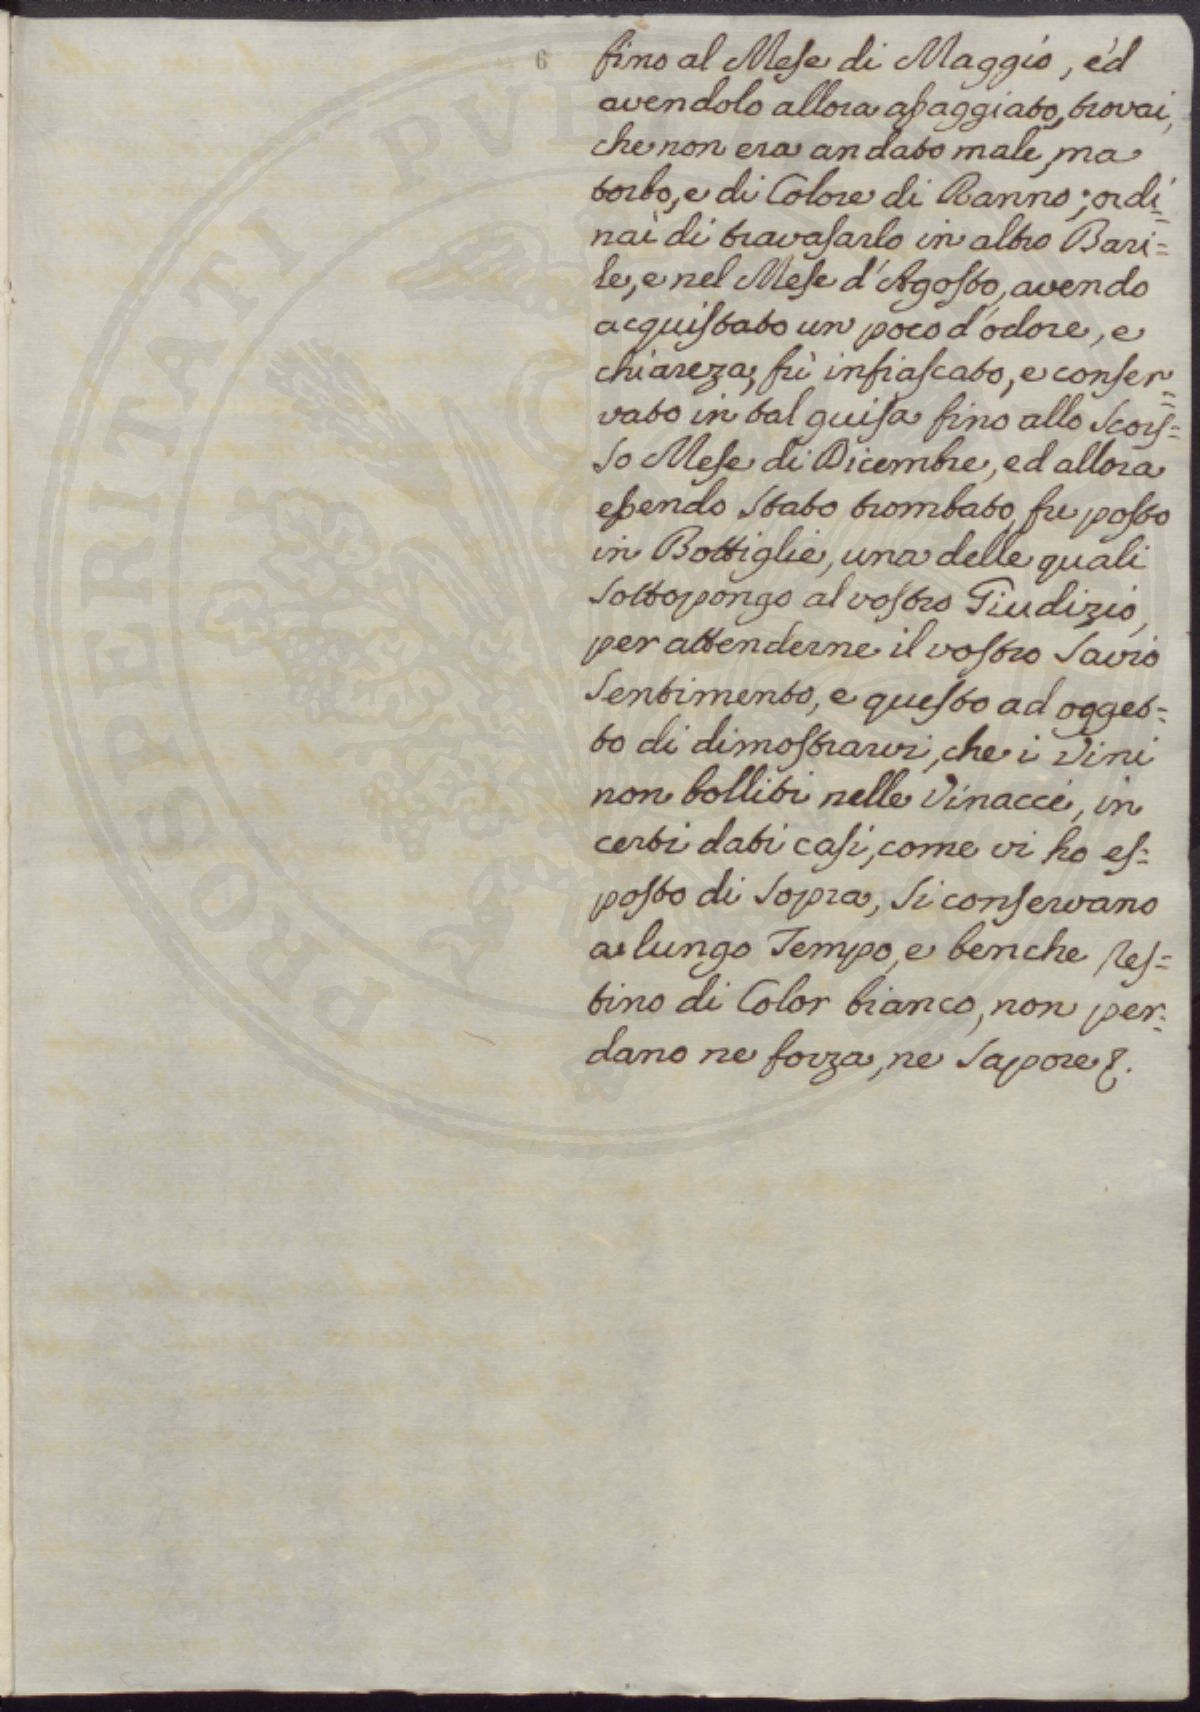 6
fino al Mese di Maggio, ed
avendolo allora assaggiato, trovai,
che non era andato male, ma
torbo, e di Colore di Ranno; ordi=
nai di travasarlo in altro Bari=
le, e nel Mese d'Agosto, avendo
acquistato un poco d'odore, e
chiareza, fù infiascato, e conser=
vato in tal guisa fino allo scors=
so Mese di Dicembre, ed allora
essendo stato trombato, fu posto
in Bottiglie, una delle quali
sottopongo al vostro Giudizio,
per attenderne il vostro Savio
Sentimento, e questo ad ogget=
to di dimostrarvi, che i Vini
non bolliti nelle Vinacce, in
certi dati casi, come vi ho es=
posto di sopra, si conservano
a lungo Tempo, e benche res=
tino di Color bianco, non per=
dano ne forza, ne sapore.
PROSPERITATI